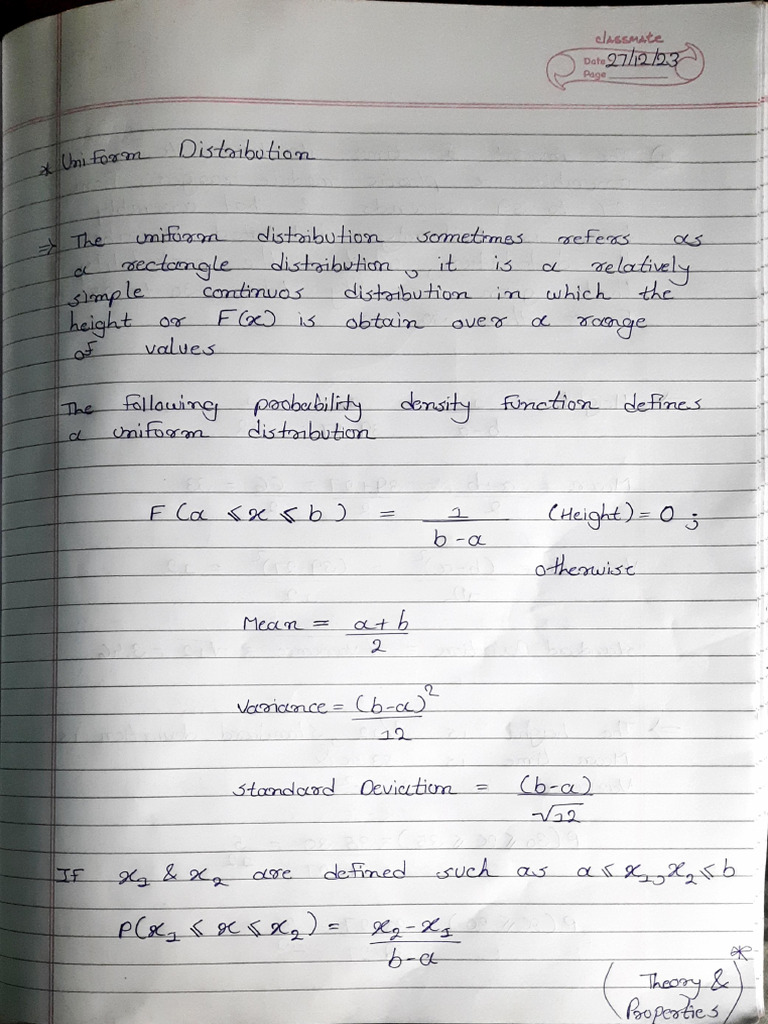 classmate
Date 27/12/23
Page
* Uniform Distribution
⇒ The uniform distribution sometimes refers as
a rectangle distribution, it is a relatively
simple continuos distribution in which the
height or F(x) is obtain over a range
of values
The following probability density function defines
a uniform distribution
F(a ≤ x ≤ b) = 1/(b-a) (Height) = 0 ;
otherwise
Mean = (a+b)/2
Variance = (b-a)²/12
Standard Deviation = (b-a)/√12
If x₁ & x₂ are defined such as a ≤ x₁, x₂ ≤ b
P(x₁ ≤ x ≤ x₂) = (x₂-x₁)/(b-a)
*
(Theory &
Properties)